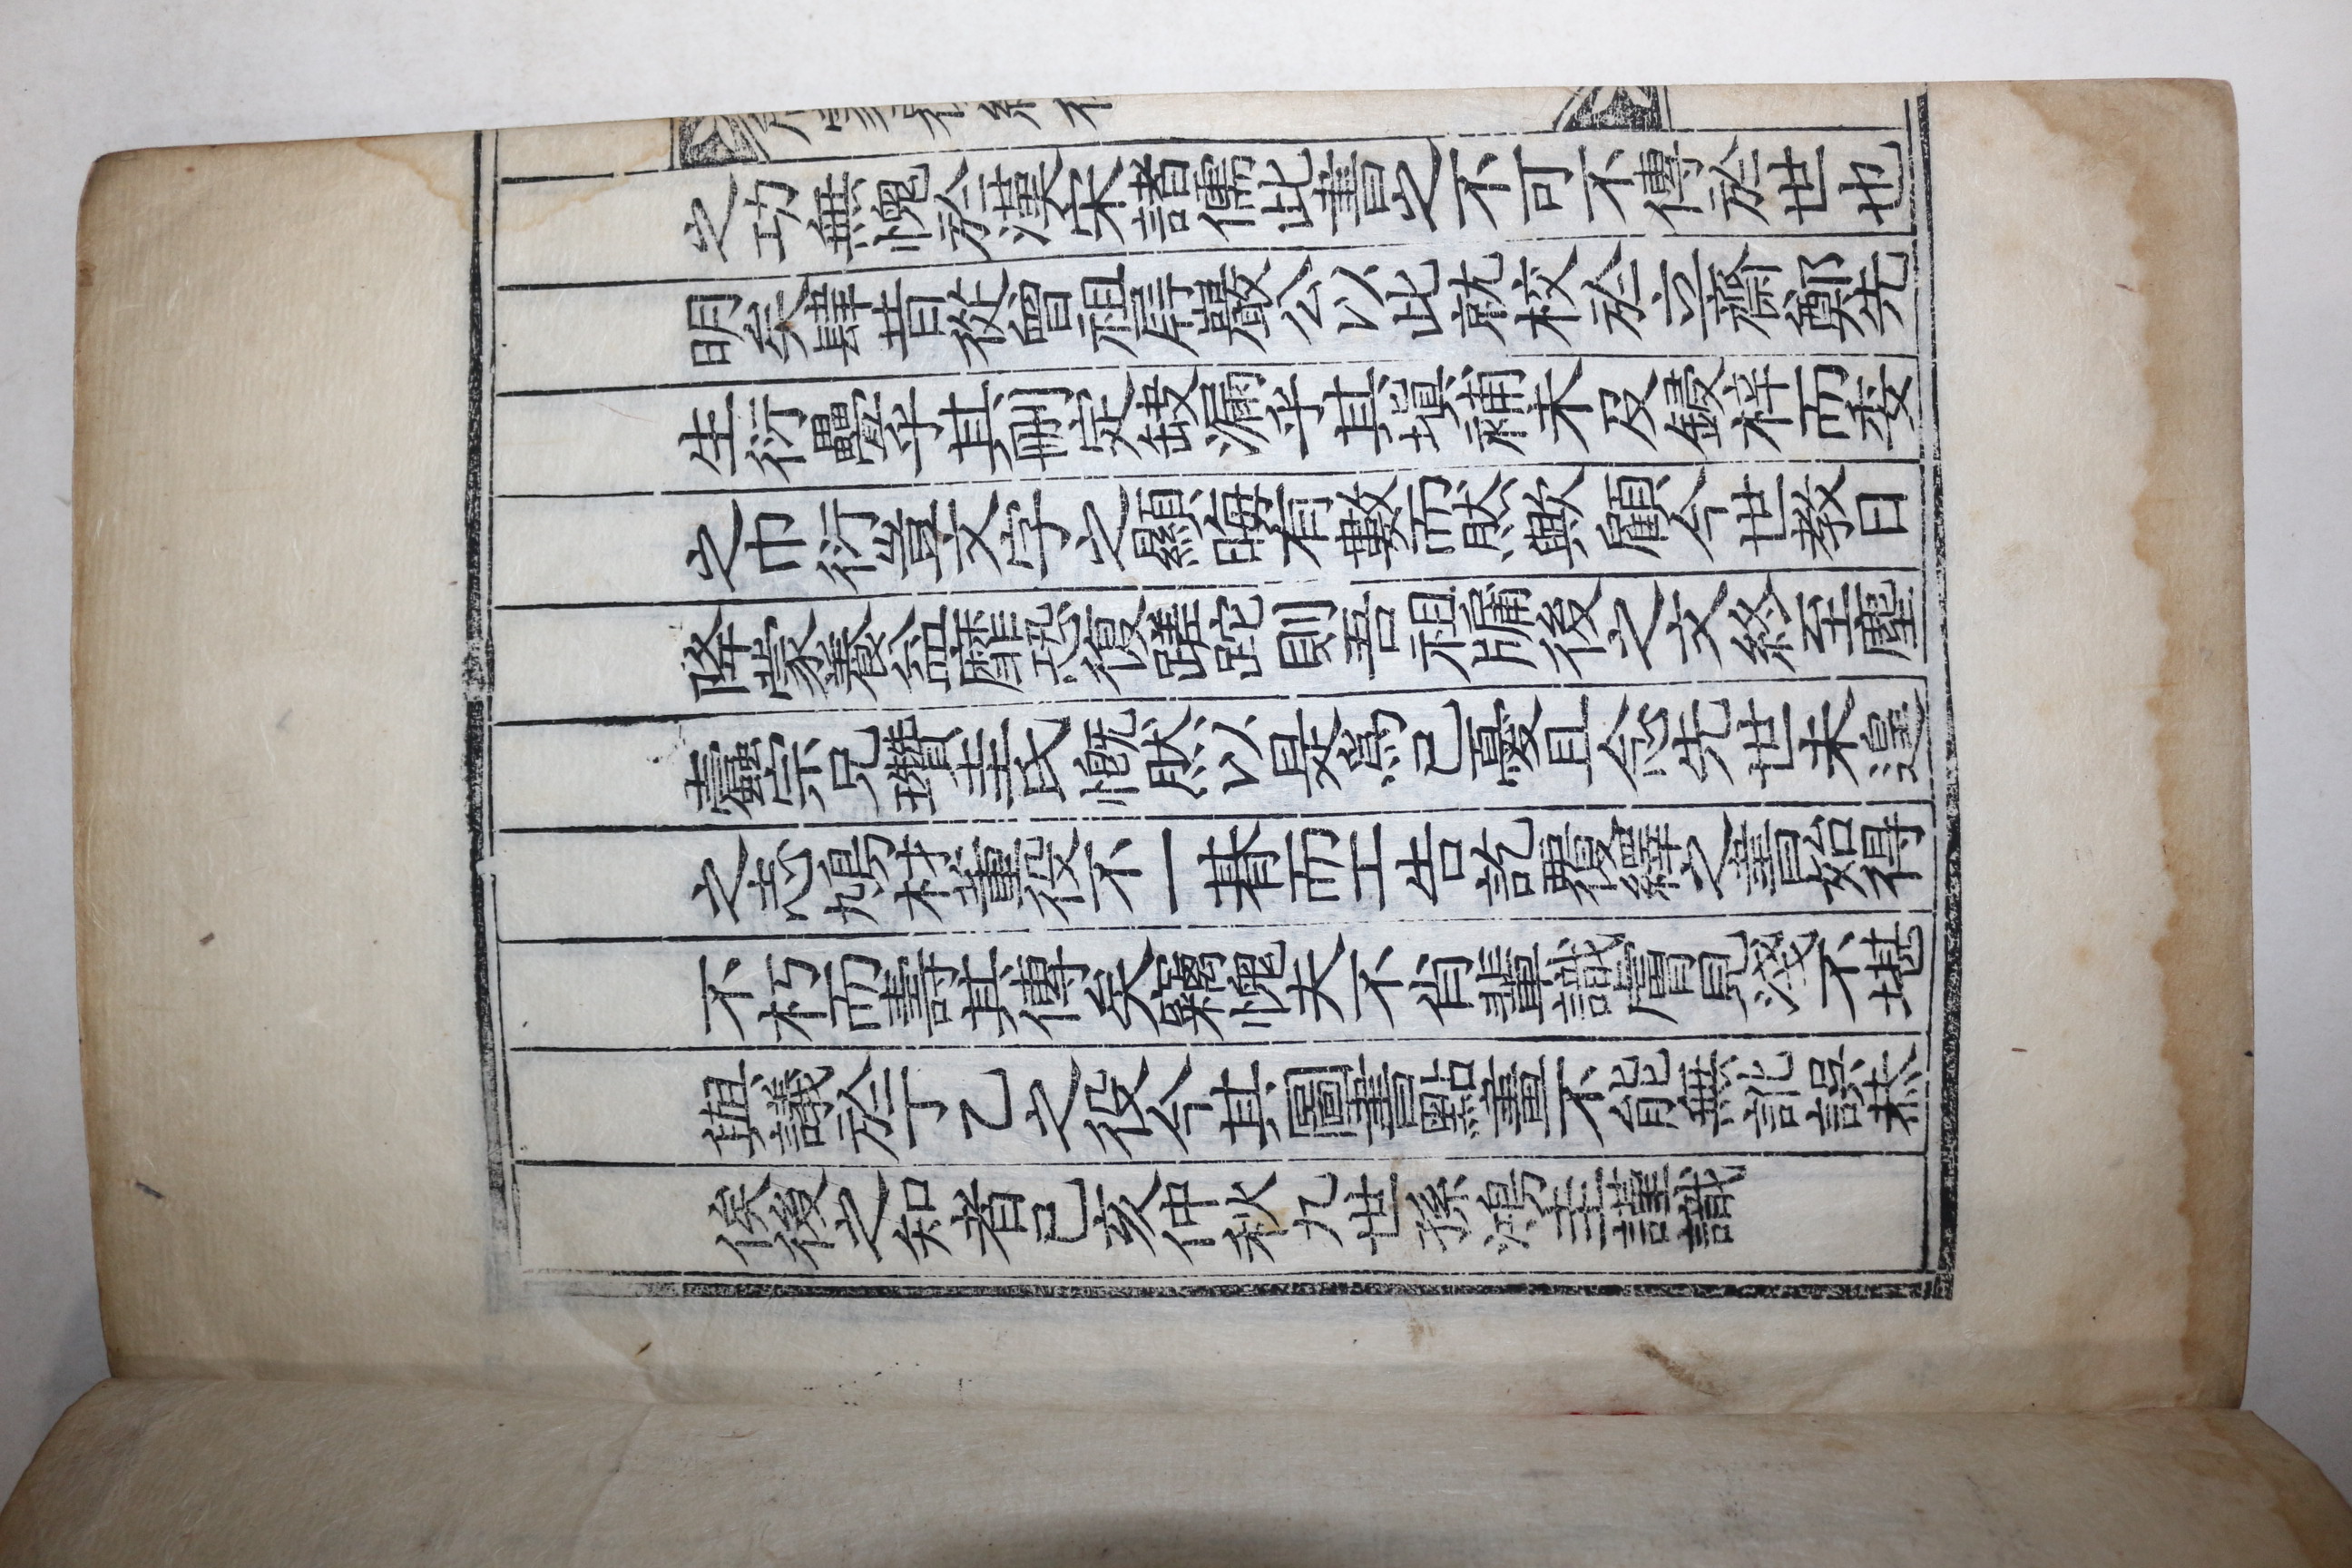 之功無愧於漢宋諸儒此書之不可不傳於世也
明矣肆昔從曾祖辱嚴公以此就校於立齋鄭先
生衍疊乎其刪定缺漏乎其塡補未及鋟梓而安
之巾衍豈文字之顯晦有數而然歟顧今世敎日
降蒙養綸靡恐復蹉跎則吾祖牖後之文終至塵
蠹宗兄瓚圭氏慨然以是爲己憂且念先世未遑
之志鳩材董役不一朞而工告訖羽經之書始得
不朽而壽其傳矣竊愧夫不肖輩識膚見淺不堪
與議於丁乙之役今其圖書點畫不能無訛誤恭
俟後之知者己亥仲秋九世孫鴻圭謹識